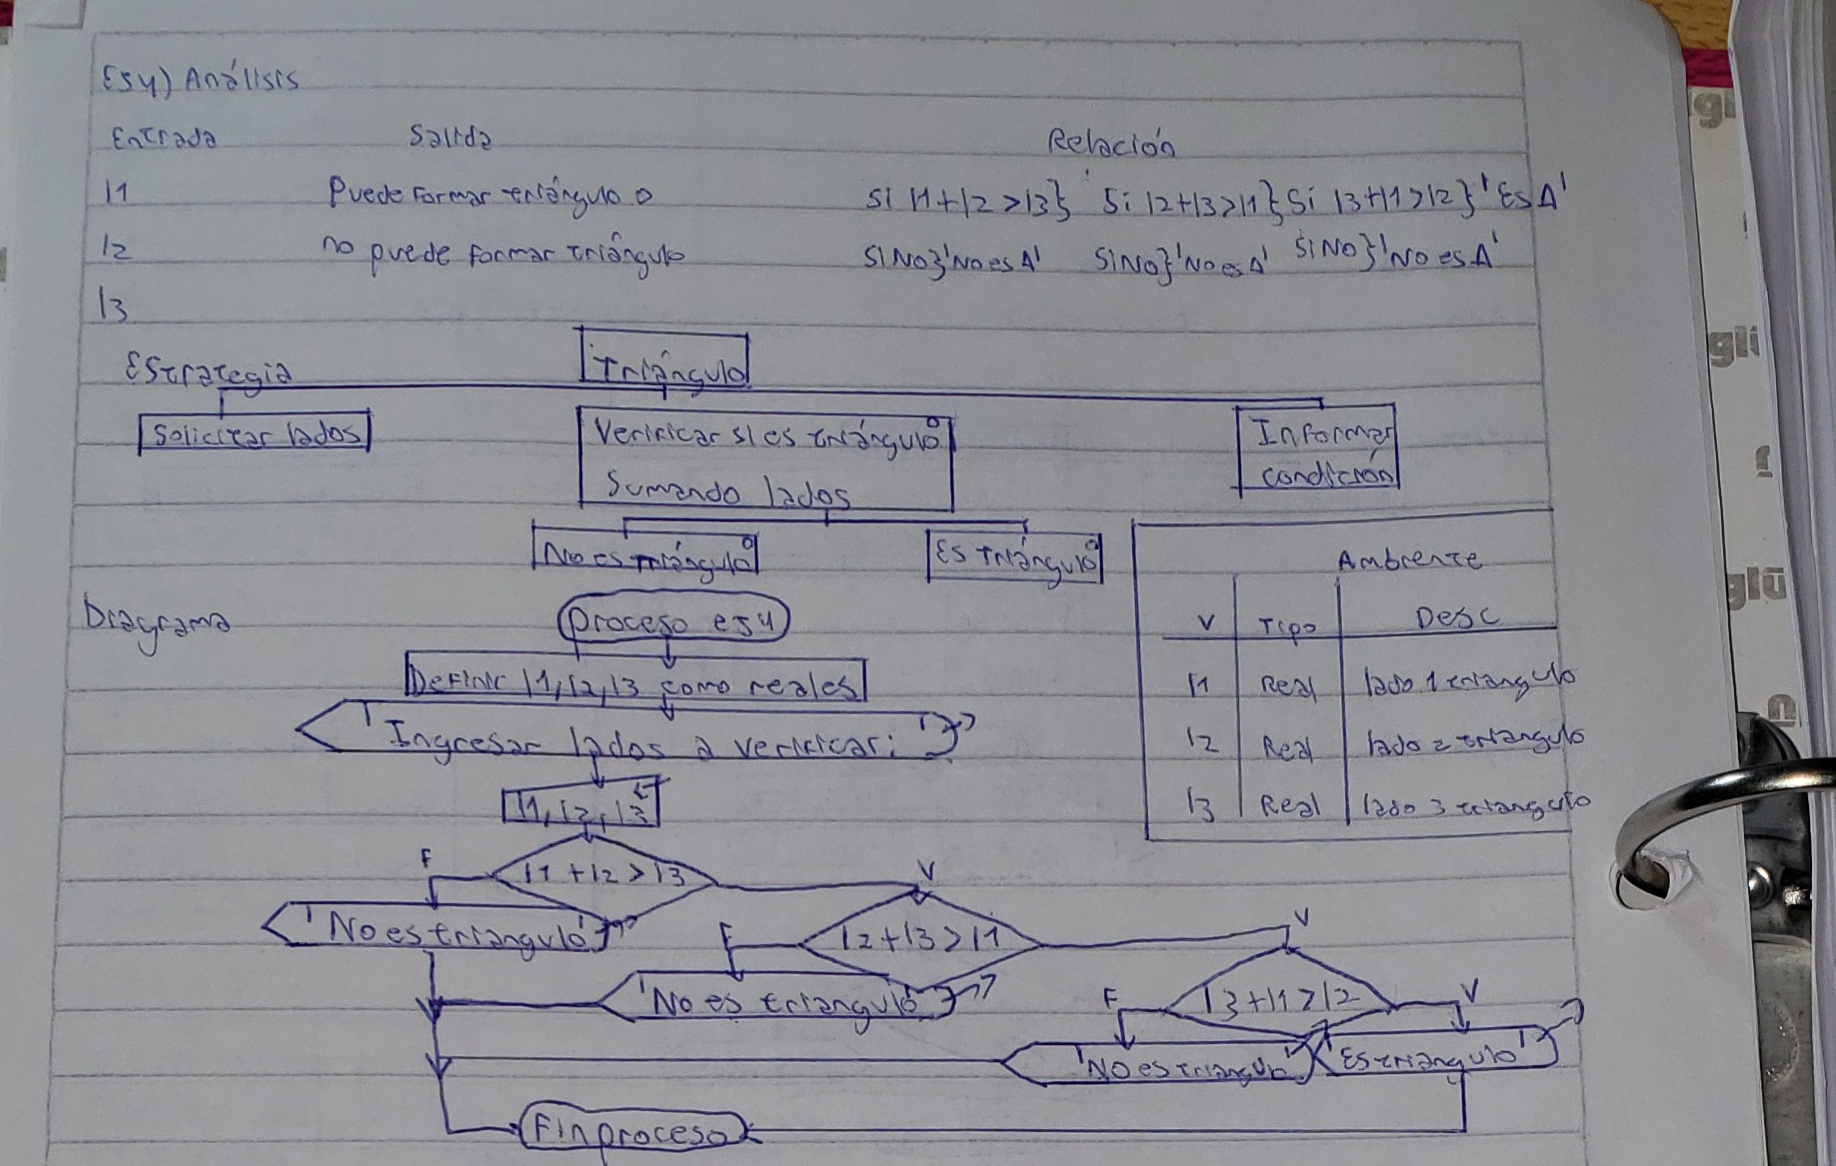 Ej4) Análisis
Entrada Salida Relación
l1 Puede formar triángulo o Si l1+l2>l3} Si l2+l3>l1} Si l3+l1>l2} 'Es Δ'
l2 no puede formar triángulo SiNo}'No es Δ' SiNo}'No es Δ' SiNo}'No es Δ'
l3
Estrategia Triángulo
Solicitar lados Verificar si es triángulo Informar
Sumando lados condición
No es triángulo Es triángulo
Ambiente
V Tipo Desc
l1 Real lado 1 triangulo
l2 Real lado 2 triangulo
l3 Real lado 3 triangulo
Diagrama
Proceso ej4
Definir l1, l2, l3 como reales
'Ingresar lados a verificar: '
l1, l2, l3
F l1+l2>l3 V
'No es triangulo' F l2+l3>l1 V
'No es triangulo' F l3+l1>l2 V
'No es triangulo' 'Es triangulo'
Fin proceso